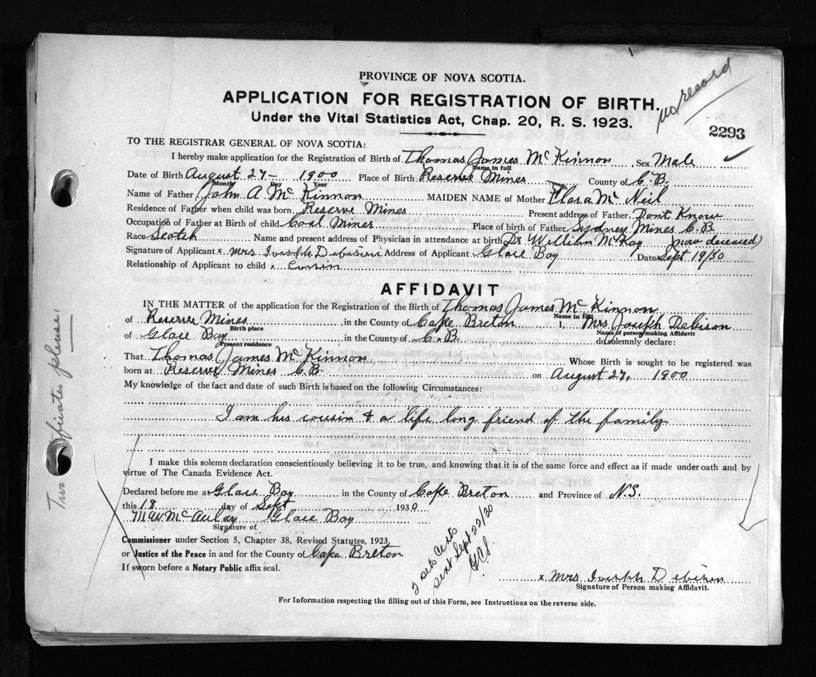 PROVINCE OF NOVA SCOTIA.
no record
APPLICATION FOR REGISTRATION OF BIRTH.
Under the Vital Statistics Act, Chap. 20, R. S. 1923.
2293
TO THE REGISTRAR GENERAL OF NOVA SCOTIA:
I hereby make application for the Registration of Birth of Thomas James McKinnon Sex Male
Name in full
Date of Birth August 27 - 1900 Place of Birth Reserve Mines County of C.B.
Month Day Year
Name of Father John A McKinnon MAIDEN NAME of Mother Flora McNeil
Residence of Father when child was born Reserve Mines Present address of Father Dont Know
Occupation of Father at Birth of Child Coal Mines Place of birth of Father Sydney Mines C.B.
Race Scotch Name and present address of Physician in attendance at birth Dr William McKay (now deceased)
Signature of Applicant x Mrs Joseph Debison Address of Applicant Glace Bay Date Sept 19/30
Relationship of Applicant to child x Cousin
AFFIDAVIT
IN THE MATTER of the application for the Registration of the Birth of Thomas James McKinnon
Name in full
of Reserve Mines in the County of Cape Breton I, Mrs Joseph Debison
Birth place Name of person making Affidavit
of Glace Bay in the County of C.B. do solemnly declare:
Present residence
That Thomas James McKinnon Whose Birth is sought to be registered was
born at Reserve Mines C.B. on August 27, 1900
My knowledge of the fact and date of such Birth is based on the following Circumstances:
I am his cousin & a life long friend of the family
I make this solemn declaration conscientiously believing it to be true, and knowing that it is of the same force and effect as if made under oath and by
virtue of The Canada Evidence Act.
Declared before me at Glace Bay in the County of Cape Breton and Province of N.S.
this 18 day of Sept 1930
M W McAulay Glace Bay
Signature of
Commissioner under Section 5, Chapter 38, Revised Statutes, 1923,
or Justice of the Peace in and for the County of Cape Breton
If sworn before a Notary Public affix seal.
sent Sept 22/30
x Mrs Joseph Debison
Signature of Person making Affidavit.
For Information respecting the filling out of this Form, see Instructions on the reverse side.
Two please!